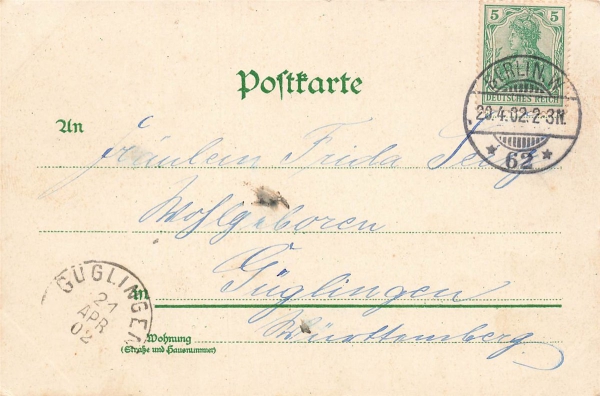 5 5
DEUTSCHES REICH
BERLIN.W.
20.4.02.2-3N.
* 62 *
Poſtkarte
An
Fräulein Frida
Wohlgeboren
GÜGLINGEN
21
APR
02
in Güglingen
Württemberg
Wohnung
(Straße und Hausnummer)